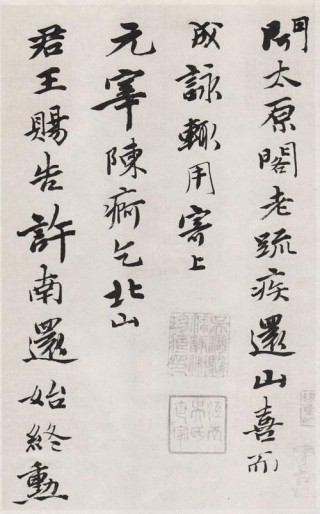 聞太原閣老疏疾還山喜而
成詠輒用寄上
元宰陳痾乞北山
君王賜告許南還始終勳